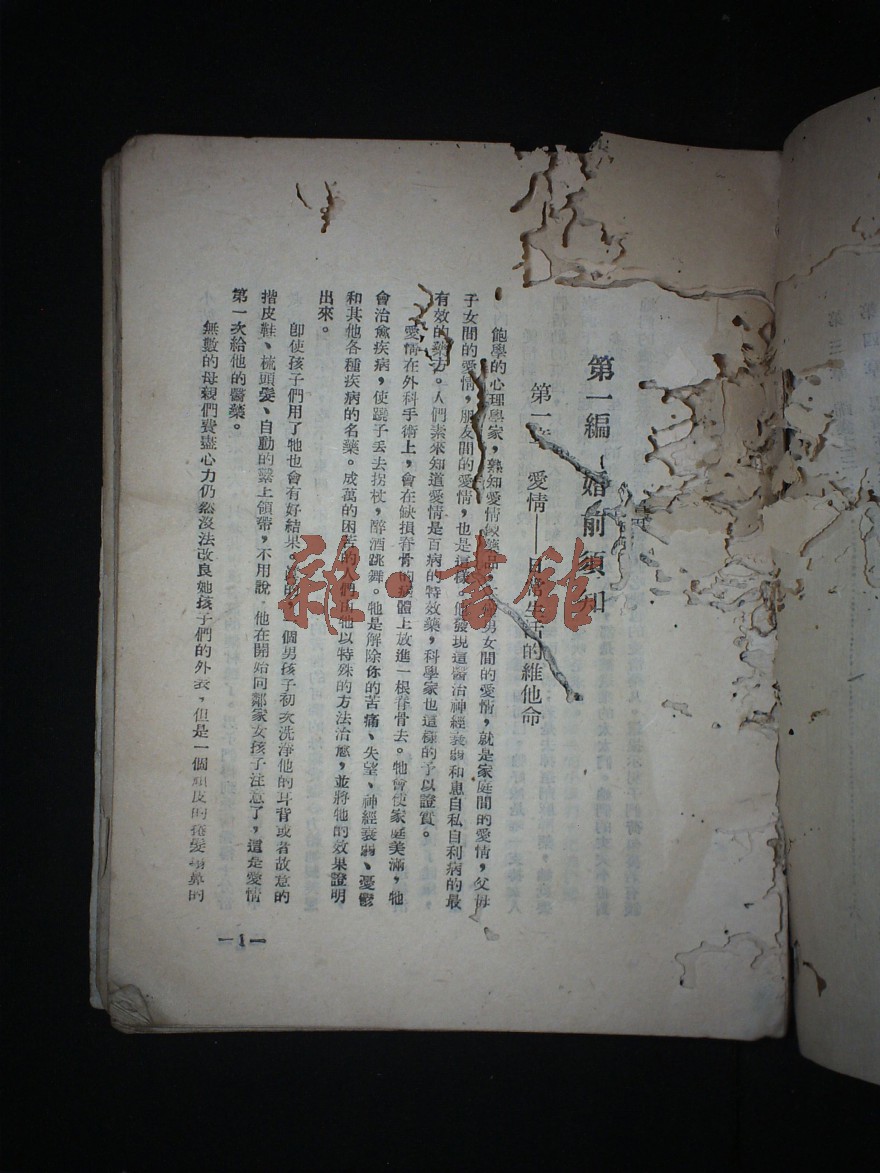 第一編 婚前須知
第一 愛情——日常生活的維他命
飽學的心理學家，熟知愛情 品。 男女間的愛情，就是家庭間的愛情，父母
子女間的愛情，朋友間的愛情，也是這樣，他發現這醫治神經衰弱和患自私自利病的最
有效的藥方。人們素來知道愛情是百病的特效藥，科學家也這樣的予以證實。
愛情在外科手術上，會在缺損脊骨的病體上放進一根脊骨去。牠會使家庭美滿，牠
會治愈疾病，使蹺子丢去拐杖，醉酒跳舞。牠是解除你的苦痛、失望、神經衰弱、憂鬱
和其他各種疾病的名藥。成萬的困苦的人們 牠以特殊的方法治愈，並將牠的效果證明
出來。
卽使孩子們用了牠也會有好結果。 的， 個男孩子初次洗淨他的耳背或者故意的
揩皮鞋、梳頭髮、自動的繫上領帶，不用說 他在開始向鄰家女孩子注意了，這是愛情
第一次給他的醫藥。
無數的母親們費盡心力仍然沒法改良她孩子們的外表，但是一個頑皮的捲髮 鼻的
—1—
雜·書館